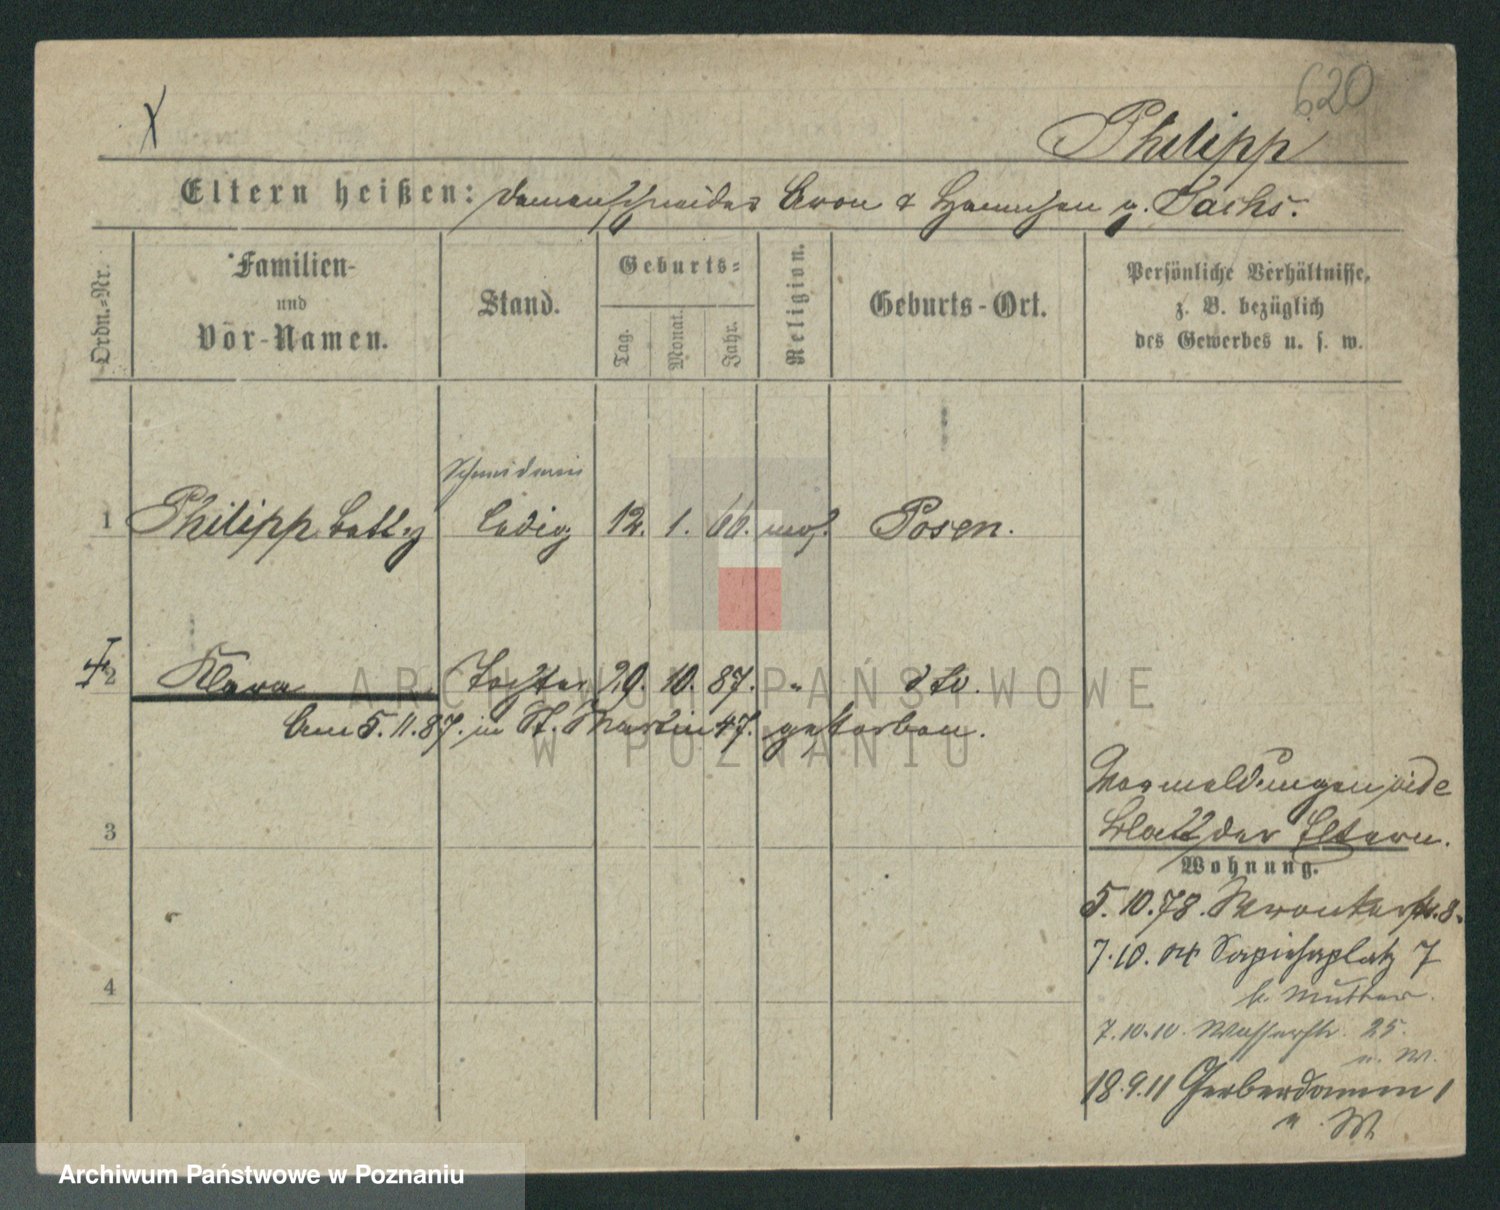 620
Philipp
Eltern heißen: Damenschneider Aron & Hannchen g. Sachs.
Ordn.-Nr.
Familien-
und
Vor-Namen.
Stand.
Geburts-
Tag.
Monat.
Jahr.
Religion.
Geburts-Ort.
Persönliche Verhältnisse,
z. B. bezüglich
des Gewerbes u. s. w.
Schneiderin
1 Philipp Betty ledig 12. 1. 66. mos. Posen.
2 Klara Tochter 29. 10. 87. " dto.
Am 5.11.87. in St. Martin 47. gestorben.
ARCHIWUM PAŃSTWOWE
W POZNANIU
Vormeldungen vide
3 Blatt der Eltern.
Wohnung.
5.10.78. Wronkerstr. 8.
7.10.04 Sapiehaplatz 7
4 b. Mutter.
7.10.10. Wasserstr. 25.
u. M.
18.9.11 Gerberdamm 1
u. M
Archiwum Państwowe w Poznaniu